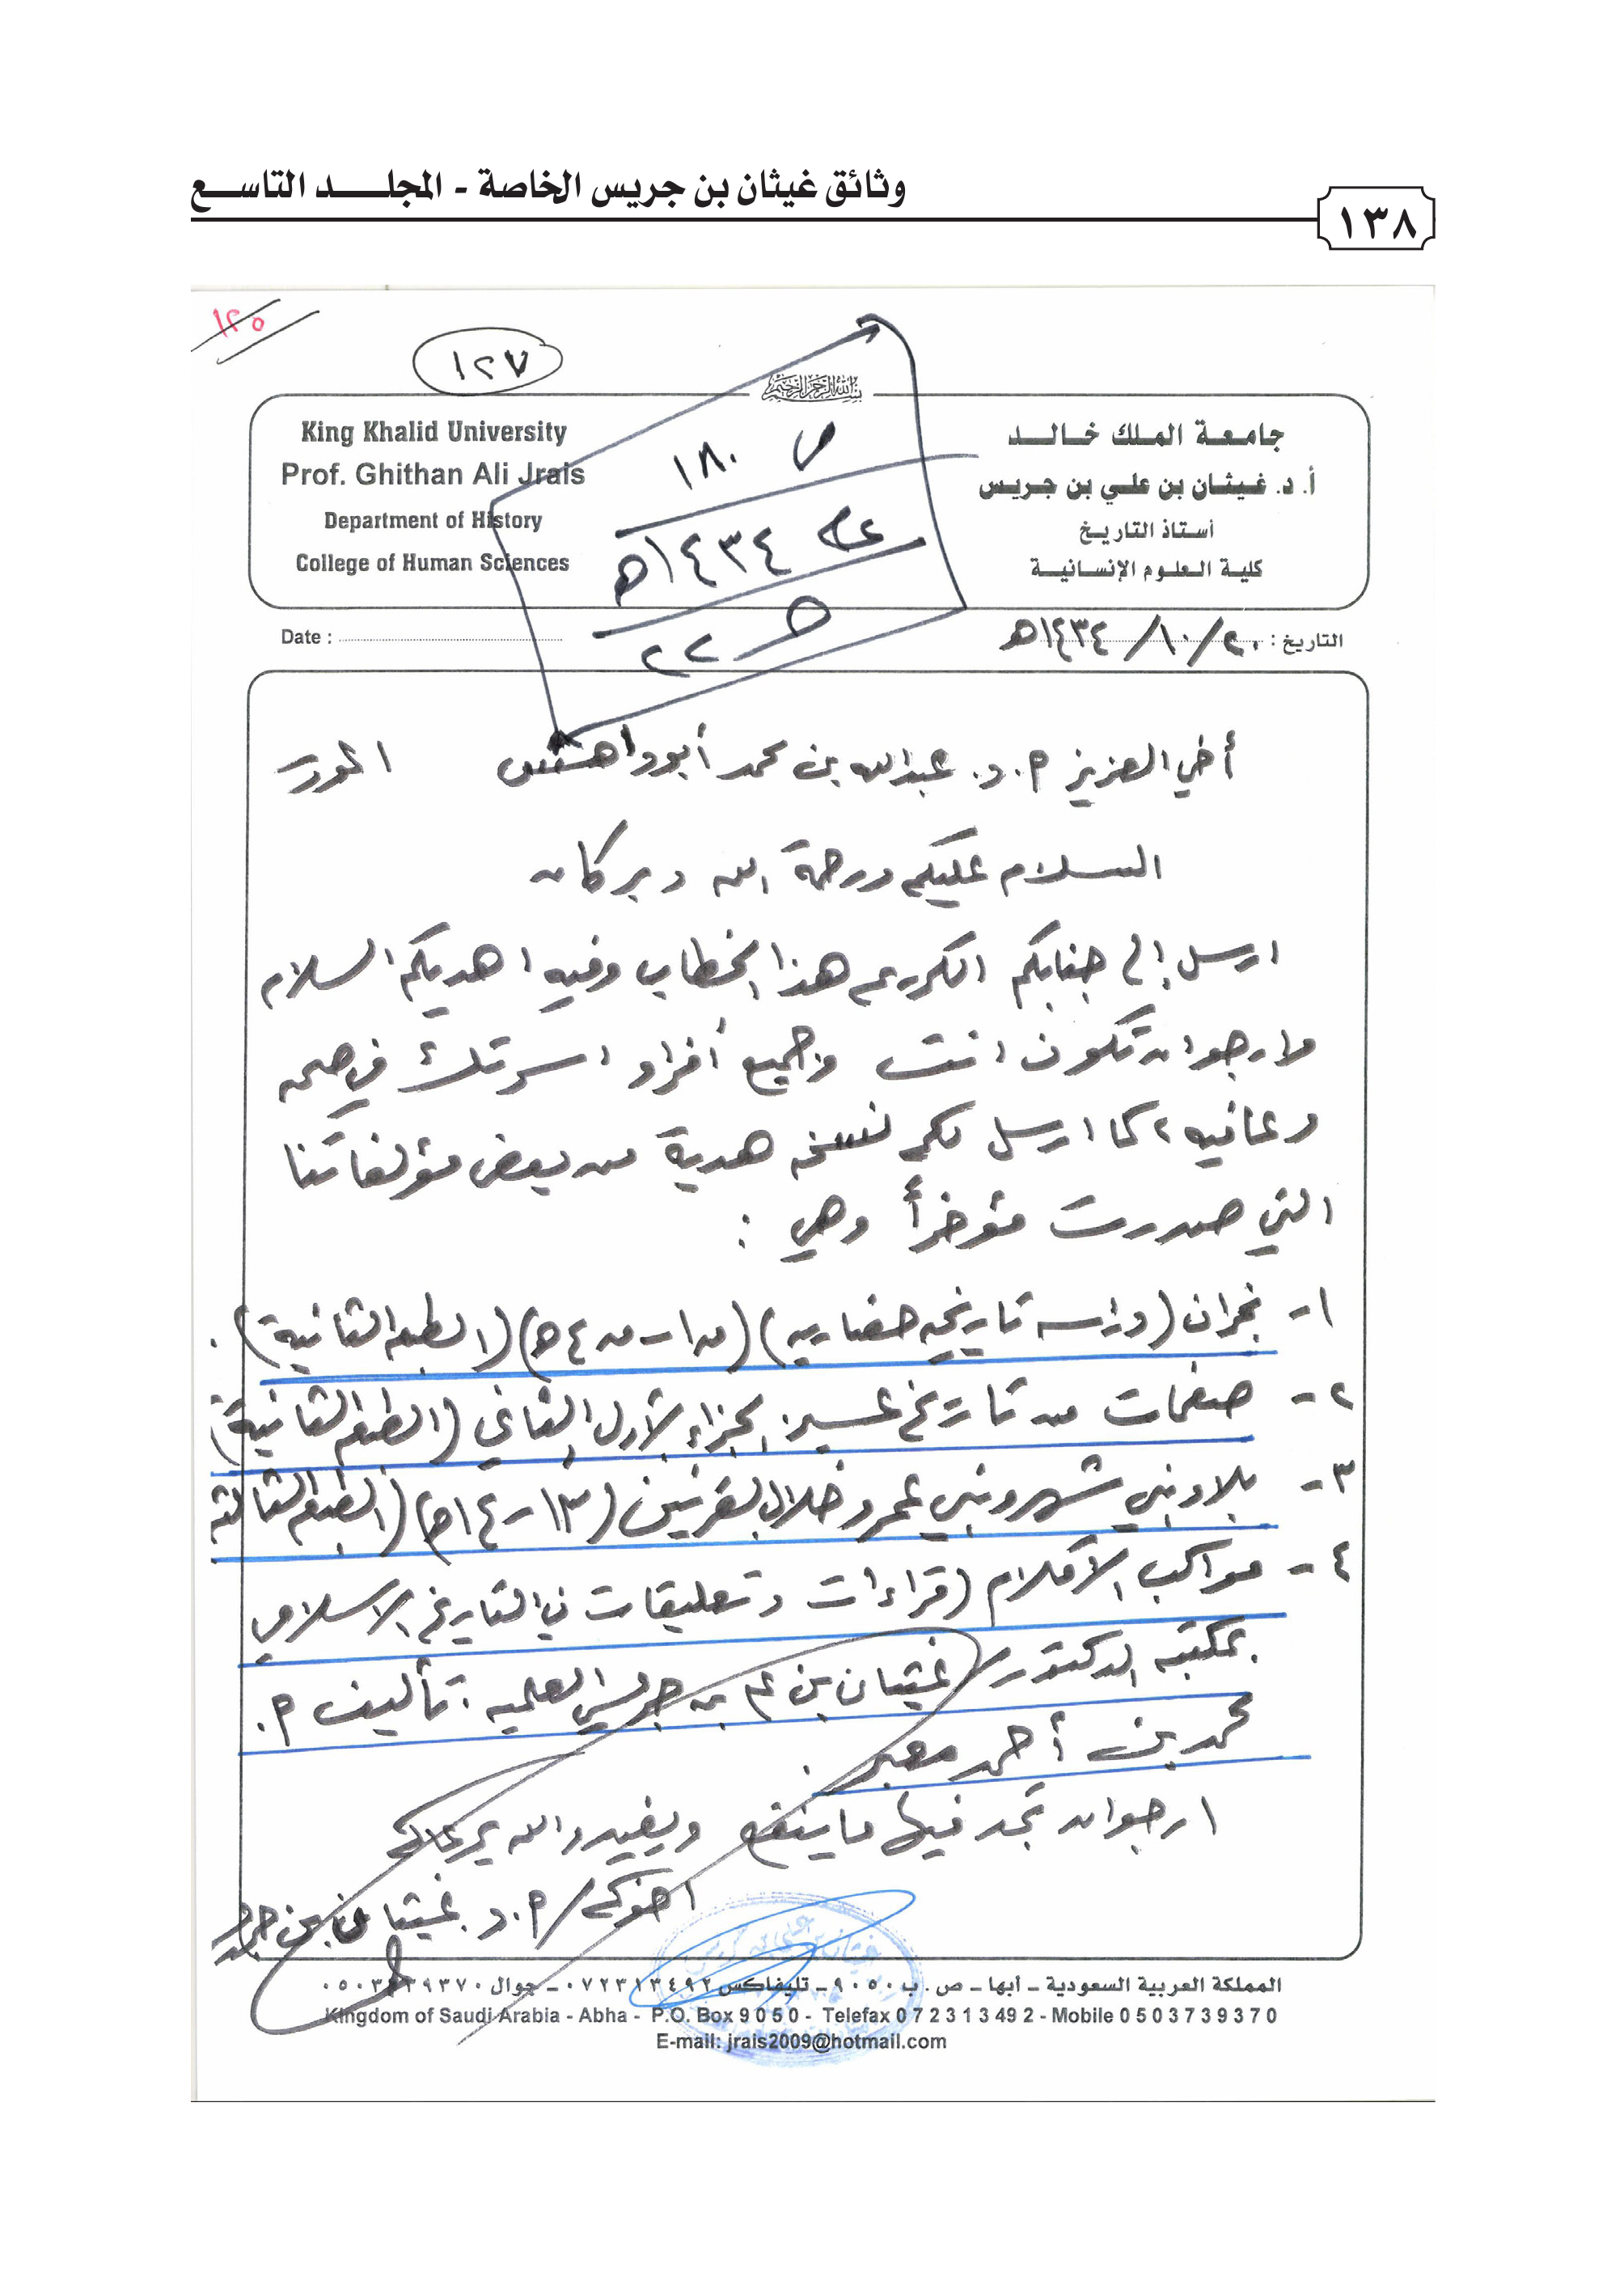 وثائق غيثان بن جريس الخاصة - المجلد التاسع
١٣٨
١٢٥
١٢٧
ص ١٨٠
عام ١٤٣٤هـ
ص ٢٢
King Khalid University
Prof. Ghithan Ali Jrais
Department of History
College of Human Sciences
جامعة الملك خالد
أ. د. غيثان بن علي بن جريس
أستاذ التاريخ
كلية العلوم الإنسانية
Date :
التاريخ : ٢٠/١٠/١٤٣٤هـ
أخي العزيز أ.د. عبدالله بن محمد أبوداهش الموقر
السلام عليكم ورحمة الله وبركاته
ارسل إلى جنابكم الكريم هذا الخطاب وفيه اهديكم السلام
وارجو ان تكون انت وجميع أفراد اسرتك في صحه
وعافيه، كما ارسل لكم نسخه هدية من بعض مؤلفاتنا
التي صدرت مؤخراً وهي :
١- نجران (دراسه تاريخيه حضاريه) (ق١-ق٤هـ) (الطبعه الثانية).
٢- صفحات من تاريخ عسير: الجزء الأول والثاني (الطبعه الثانية)
٣- بلاد بني شهر وبني عمرو خلال القرنين (١٣-١٤هـ) (الطبعه الثالثة
٤- مواكب الأقلام (قراءات وتعليقات في التاريخ الاسلامي
بمكتبة الدكتور غيثان بن علي بن جريس العلميه. تأليف أ.
محمد بن أحمد معبر.
ارجو ان تجد فيها ما ينفع ويفيد والله يرعاك
اخوك/ أ.د. غيثان بن جريس
المملكة العربية السعودية – أبها – ص. ب ٩٠٥٠ – تليفاكس ٠٧٢٣١٣٤٩٢ – جوال ٠٥٠٣٧٣٩٣٧٠
Kingdom of Saudi Arabia - Abha - P.O. Box 9050 - Telefax 072313492 - Mobile 0503739370
E-mail: jrais2009@hotmail.com